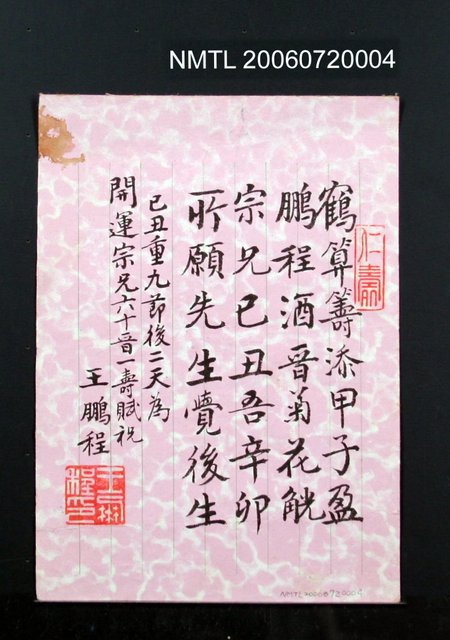 NMTL 20060720004
仁壽
鶴算籌添甲子盈
鵬程酒晉菊花觥
宗兄己丑吾辛卯
所願先生覺後生
己丑重九節後二天為
開運宗兄六十晉一壽賦祝
王鵬程
NMTL20060720004